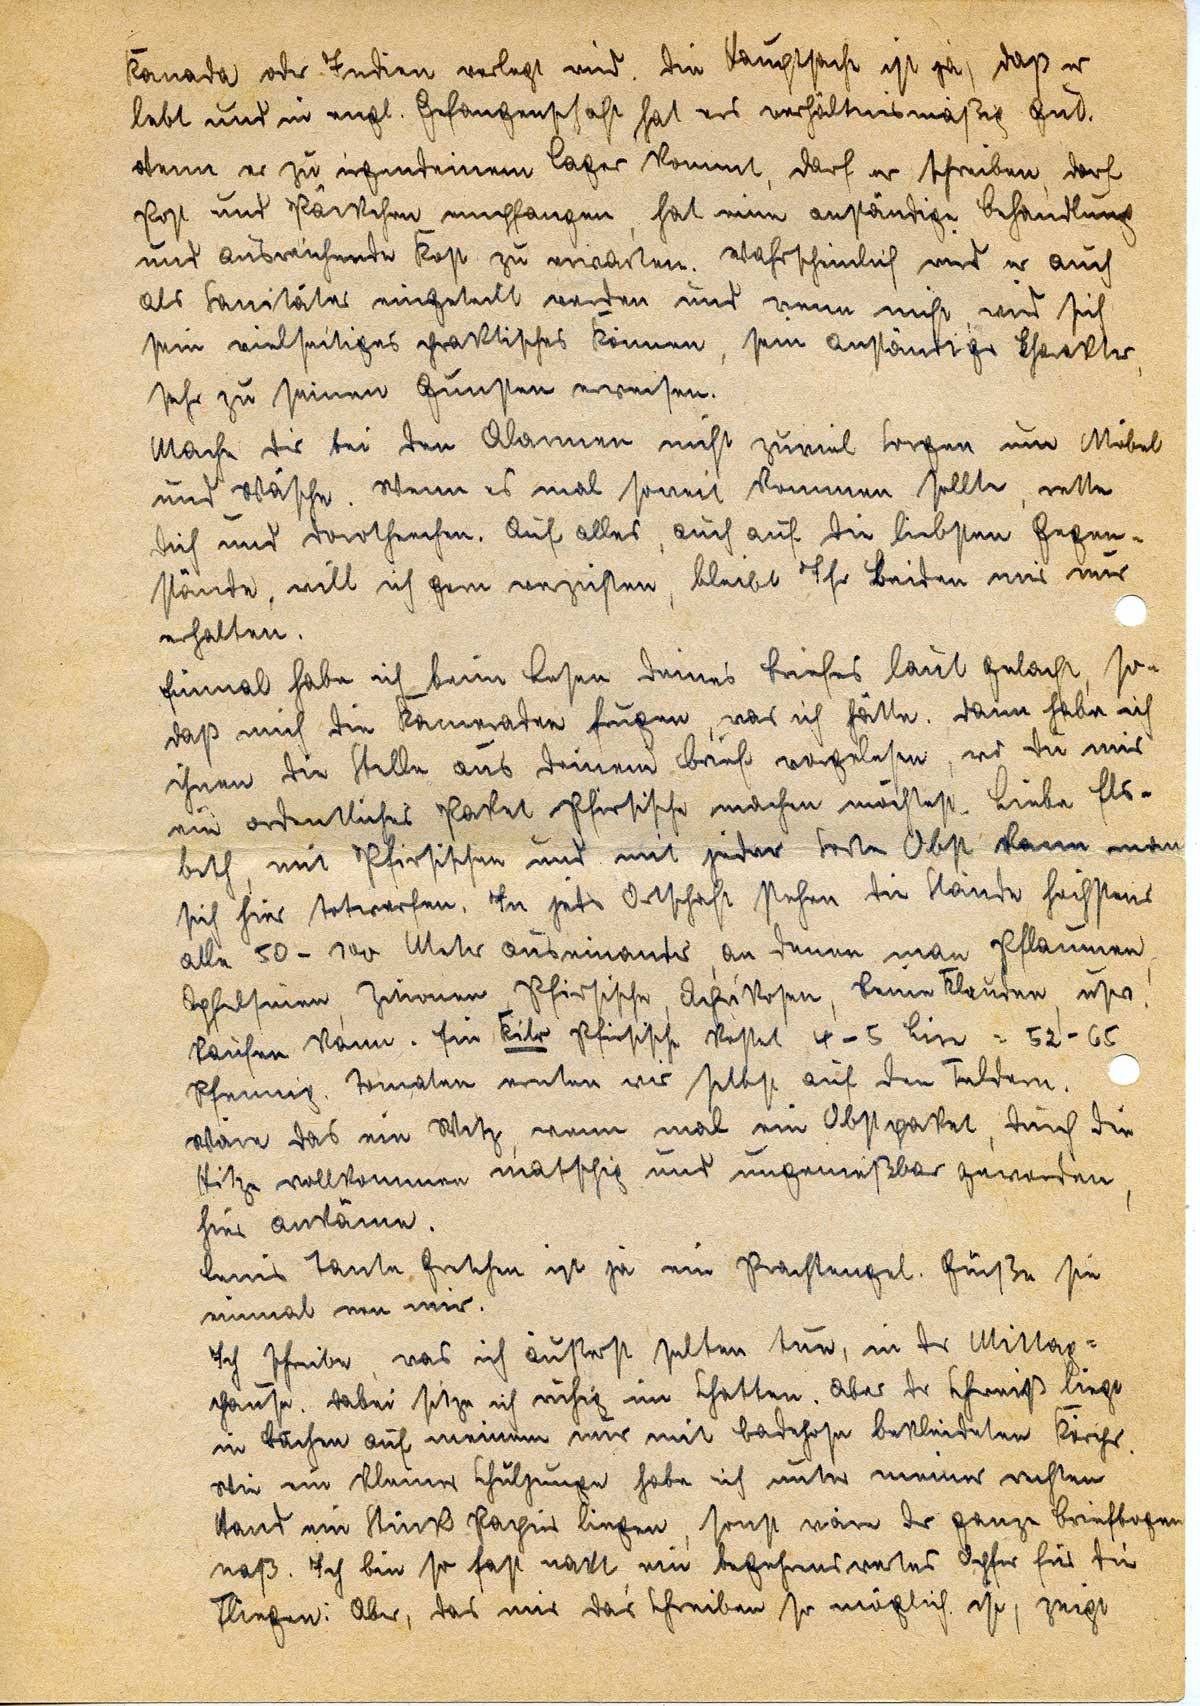 Kanada oder Indien verlegt wird. Die Hauptsache ist ja, daß er
lebt und in engl. Gefangenschaft hat ers verhältnismäßig gut.
Wenn er zu irgendeinem Lager kommt, darf er schreiben, darf
Post und Päckchen empfangen, hat eine anständige Behandlung
und ausreichende Kost zu erwarten. Wahrscheinlich wird er auch
als Sanitäter eingeteilt werden und wenn nicht, wird sich
sein vielseitiges praktisches Können, sein anständiger Charakter,
sehr zu seinen Gunsten erweisen.
Mache Dir bei den Alarmen nicht zuviel Sorgen um Möbel
und Wäsche. Wenn es mal soweit kommen sollte, rette
Dich und Dorotheechen. Auf alles, auch auf die liebsten Gegen-
stände, will ich gern verzichten, bleibt Ihr Beiden mir nur
erhalten.
Einmal habe ich beim Lesen Deines Briefes laut gelacht, so-
daß mich die Kameraden frugen, was ich hätte. Dann habe ich
ihnen die Stelle aus Deinem Brief vorgelesen, wo Du mir
ein ordentliches Paket Pfirsische machen möchtest. Liebe Els-
beth, mit Pfirsischen und mit jeder Sorte Obst kann man
sich hier totwerfen. In jeder Ortschaft stehen die Stände höchstens
alle 50 - 100 Meter auseinander, an denen man Pflaumen,
Apfelsinen, Zitronen, Pfirsische, Aprikosen, Reineklauden, usw.
kaufen kann. Ein Kilo Pfirsische kostet 4 - 5 Lire = 52 - 65
Pfennig. Tomaten ernten wir selbst auf den Feldern.
Wäre das ein Witz, wenn mal ein Obstpaket, durch die
Hitze vollkommen matschig und ungenießbar geworden,
hier ankäme.
Lenis Tante Gretchen ist ja ein Prachtengel. Grüße sie
einmal von mir.
Ich schreibe, was ich äußerst selten tue, in der Mittag-
pause. Dabei sitze ich ruhig im Schatten. Aber der Schweiß liegt
in Bächen auf meinem nur mit Badehose bekleideten Körper.
Wie ein kleiner Schuljunge habe ich unter meiner rechten
Hand ein Stück Papier liegen, sonst wäre der ganze Briefbogen
naß. Ich bin so fast nakt ein begehrenswertes Opfer für die
Fliegen. Aber, das mir das Schreiben so möglich ist, zeigt